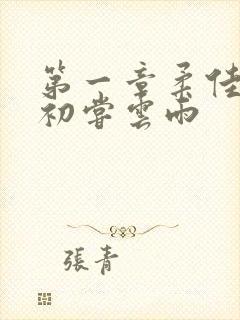 第一章柔佳
初嘗雲雨
張青